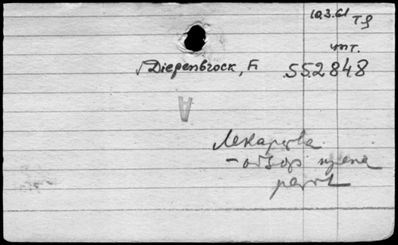 10.3.61 Тд
чит.
√Diepenbrock, F. 552848
A
Лекарства
- обзор